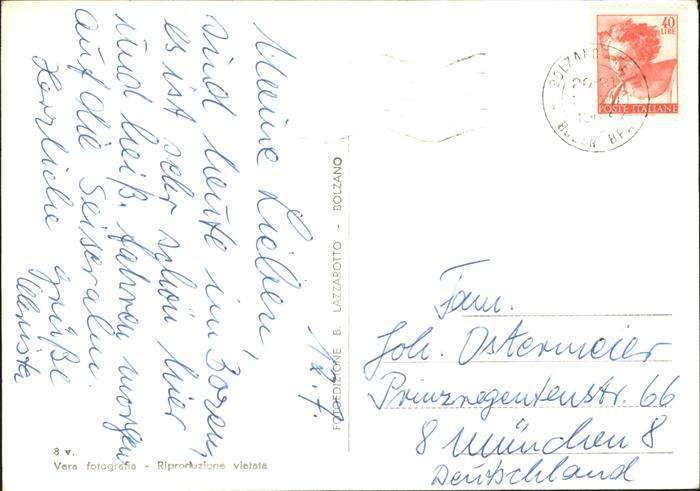 Meine Lieben,
sind heute in Bozen,
es ist sehr schön hier
und heiß, fahren morgen
auf die Seiseralm.
Herzliche Grüße
8 v.
Vera fotografia - Riproduzione vietata
FOTOEDIZIONE B. LAZZAROTTO - BOLZANO
40
LIRE
POSTE ITALIANE
BOLZANO
Fam.
Joh. Ostermeier
Prinzregentenstr. 66
8 München 8
Deutschland